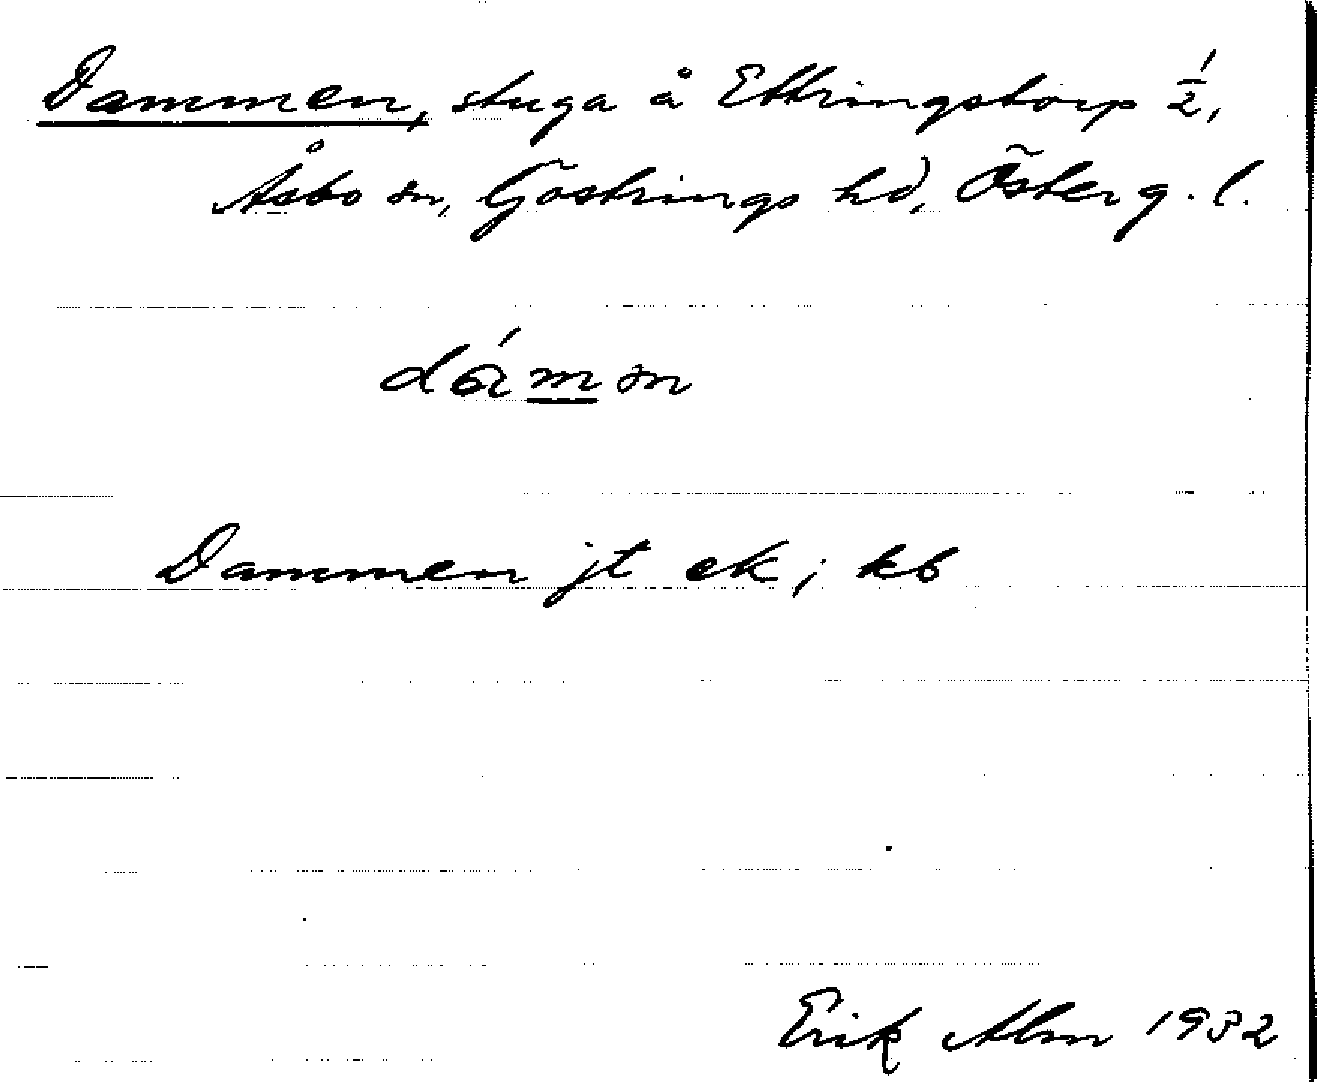 Dammen, stuga å Ettringstorp 1/2,
Åsbo sn, Göstrings hd, Österg. l.
Dammen jt ek; kb
Erik Alm 1932